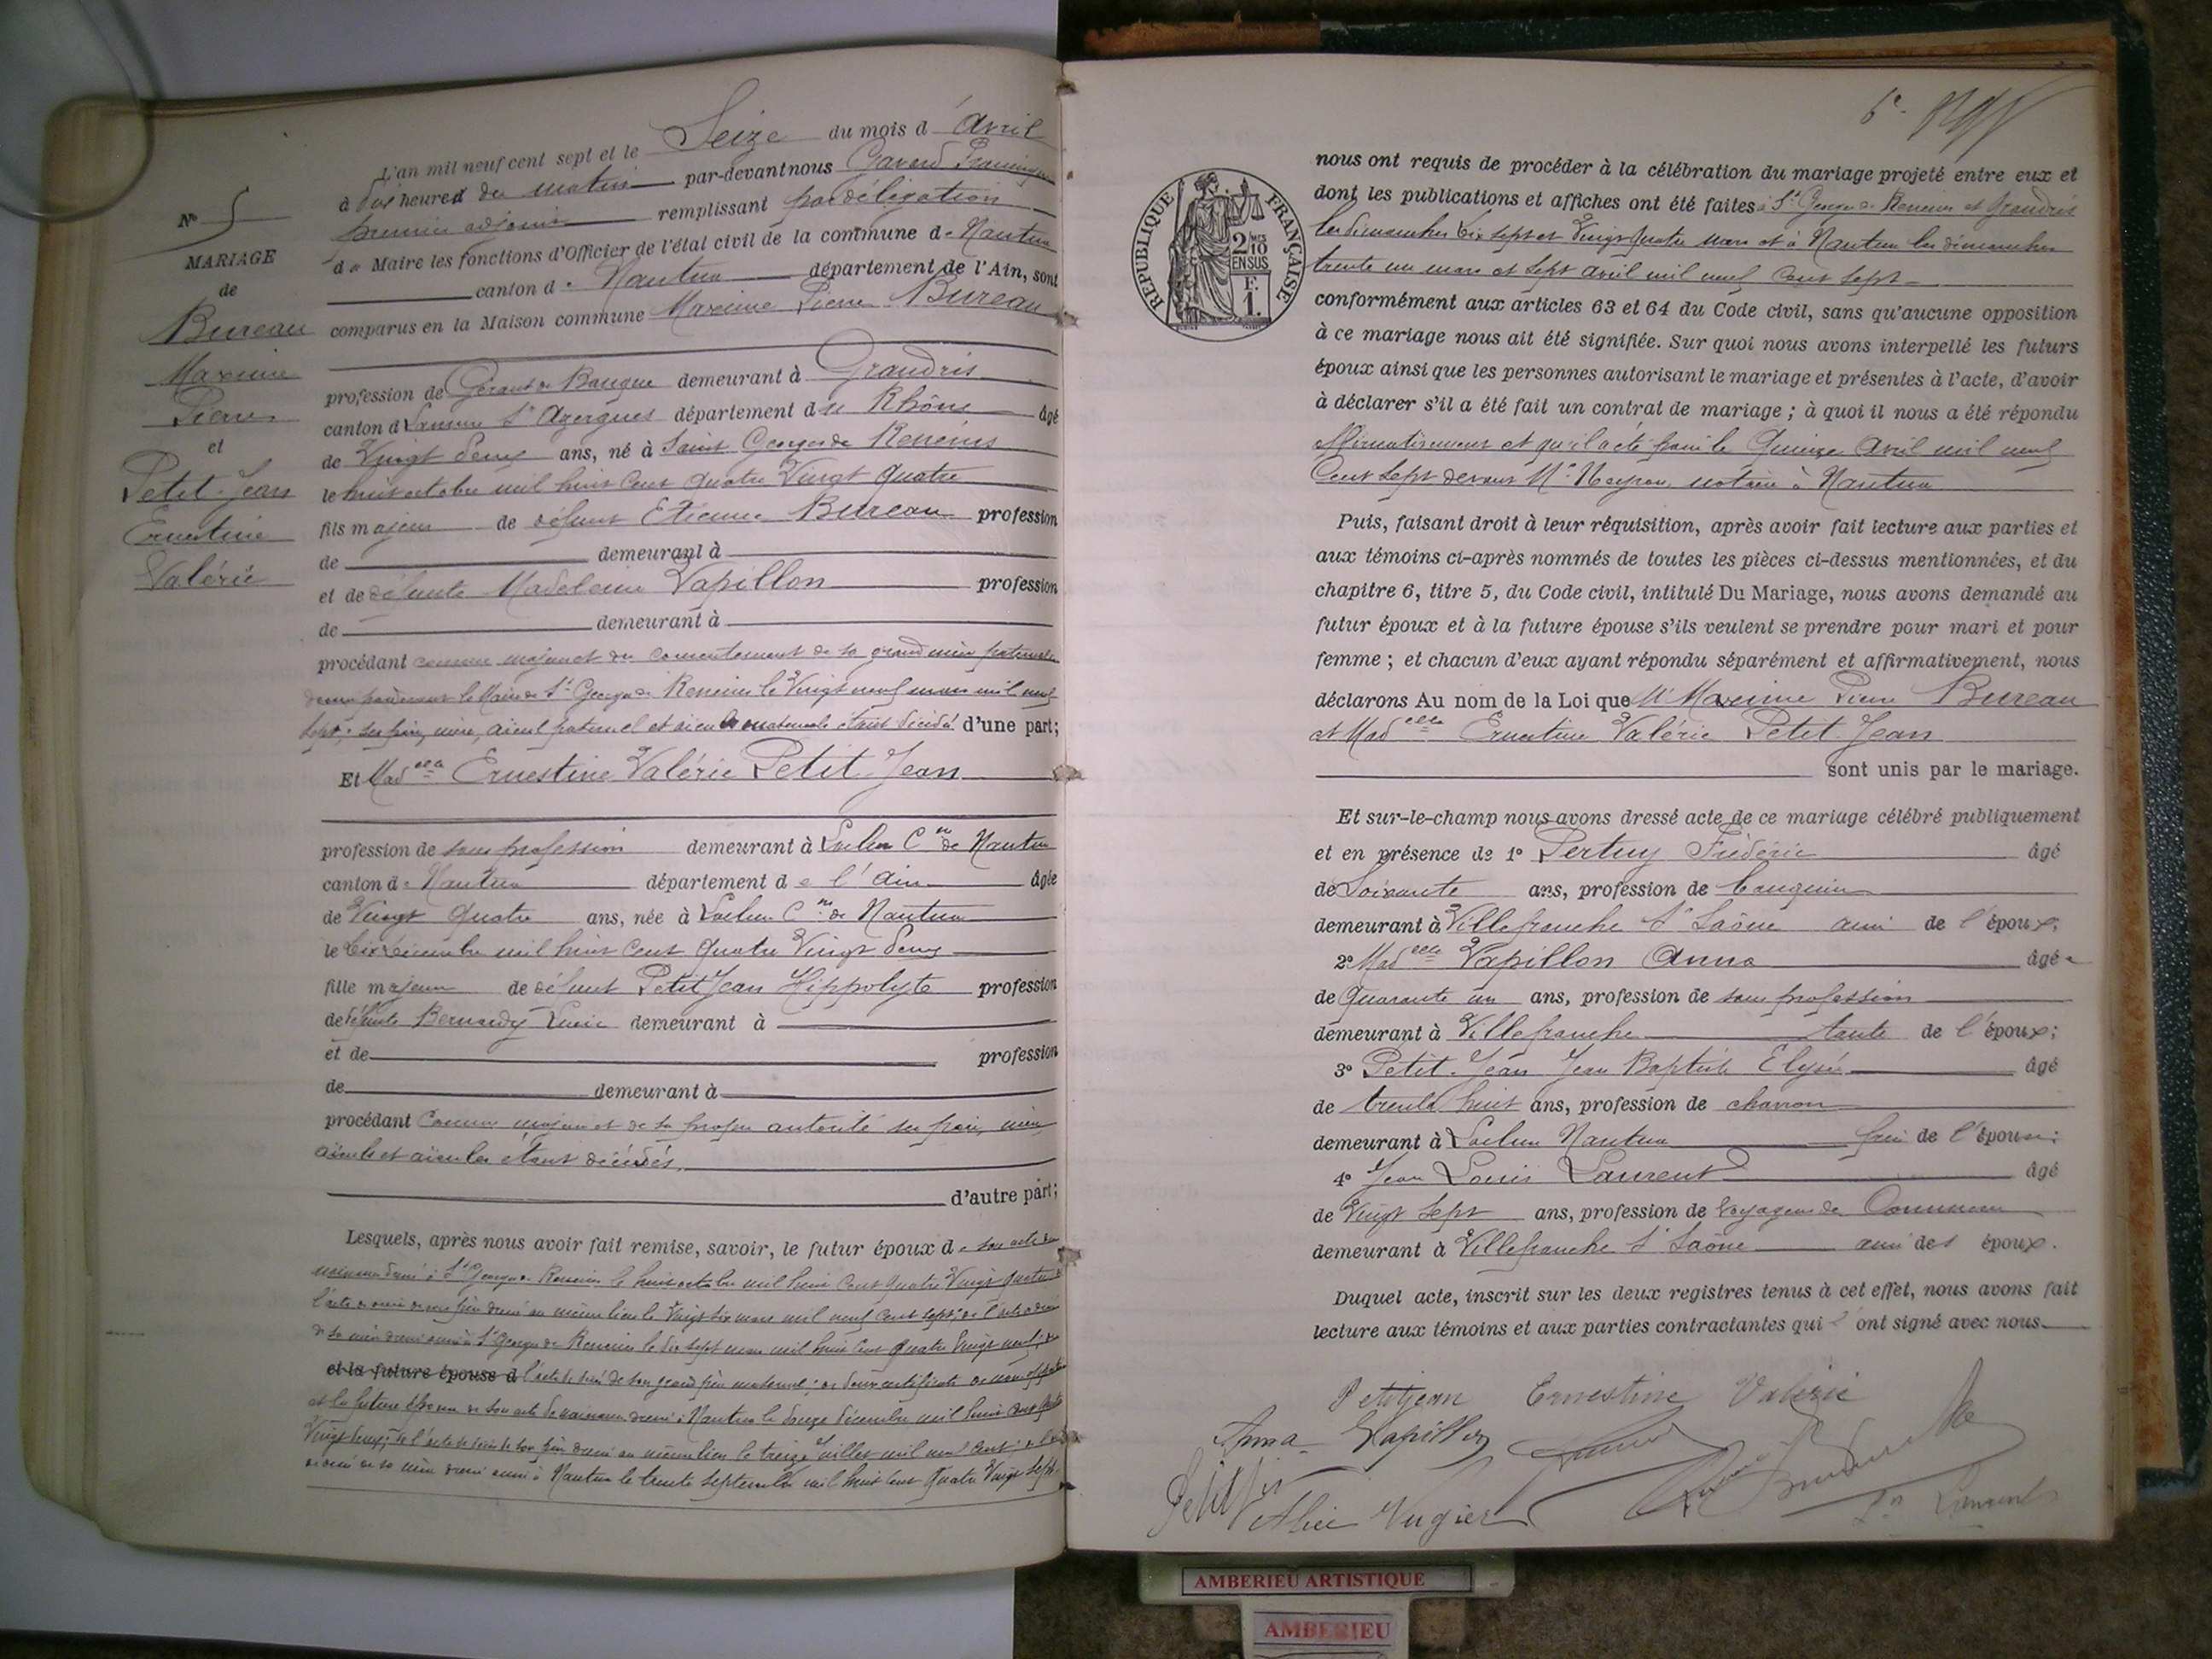 L'an mil neuf cent sept et le Seize du mois d'avril
à dix heures du matin par-devant nous Gavard
premier adjoint remplissant par délégation
de Maire les fonctions d'Officier de l'état civil de la commune de Nantua
canton de Nantua département de l'Ain, sont
comparus en la Maison commune Maxime Pierre Bureau
N° 5
MARIAGE
de
Bureau
Maxime
Pierre
et
Petit-Jean
Ernestine
Valérie
profession de Gérant de Banque demeurant à Grandris
canton de Lamure sr Azergues département du Rhône âgé
de Vingt deux ans, né à Saint Georges de Reneins
le huit octobre mil huit cent quatre Vingt quatre
fils majeur de défunt Etienne Bureau profession
de demeurant à
et de défunte Madeleine Vapillon profession
de demeurant à
procédant comme majeur et du consentement de sa grand mère paternelle
le Maire de St Georges de Reneins le Vingt neuf mars mil neuf
sept; ses père, mère, aïeul paternel et aïeuls maternels étant décédés d'une part;
Et Madelle Ernestine Valérie Petit-Jean
profession de sans profession demeurant à Cne de Nantua
canton de Nantua département de l'Ain âgée
de Vingt quatre ans, née à Cne de Nantua
le dix décembre mil huit cent quatre Vingt deux
fille majeure de défunt Petit Jean Hippolyte profession
de défunte Bernardy Lucie demeurant à
et de profession
de demeurant à
procédant Comme majeure et de sa propre autorité ses père, mère
aïeuls et aïeules étant décédés.
d'autre part;
Lesquels, après nous avoir fait remise, savoir, le futur époux de son acte de
naissance dressé à St Georges de Reneins le huit octobre mil huit cent quatre Vingt quatre
l'acte de décès de son père dressé au même lieu le Vingt six mars mil neuf cent sept; de l'acte de décès
de sa mère dressé aussi à St Georges de Reneins le dix sept mars mil huit cent quatre Vingt neuf; de
et la future épouse d l'acte de décès de son grand père maternel; de deux certificats de non opposition
et la future épouse de son acte de naissance dressé à Nantua le douze décembre mil huit cent quatre
Vingt deux; de l'acte de décès de son père dressé au même lieu le treize juillet mil neuf cent
décès de sa mère dressé aussi à Nantua le trente septembre mil huit cent quatre Vingt sept.
nous ont requis de procéder à la célébration du mariage projeté entre eux et
dont les publications et affiches ont été faites à St Georges de Reneins et Grandris
les dimanches dix sept et Vingt quatre mars et à Nantua les dimanches
trente un mars et sept avril mil neuf cent sept
RÉPUBLIQUE FRANÇAISE
2/10MES
EN SUS
F.
1.
conformément aux articles 63 et 64 du Code civil, sans qu'aucune opposition
à ce mariage nous ait été signifiée. Sur quoi nous avons interpellé les futurs
époux ainsi que les personnes autorisant le mariage et présentes à l'acte, d'avoir
à déclarer s'il a été fait un contrat de mariage ; à quoi il nous a été répondu
affirmativement et qu'il a été passé le Quinze Avril mil neuf
Cent Sept devant Me Neyron notaire à Nantua
Puis, faisant droit à leur réquisition, après avoir fait lecture aux parties et
aux témoins ci-après nommés de toutes les pièces ci-dessus mentionnées, et du
chapitre 6, titre 5, du Code civil, intitulé Du Mariage, nous avons demandé au
futur époux et à la future épouse s'ils veulent se prendre pour mari et pour
femme ; et chacun d'eux ayant répondu séparément et affirmativement, nous
déclarons Au nom de la Loi que Mr Maxime Pierre Bureau
et Madelle Ernestine Valérie Petit-Jean
sont unis par le mariage.
Et sur-le-champ nous avons dressé acte de ce mariage célébré publiquement
et en présence de 1° Pertuy Frédéric âgé
de Soixante ans, profession de banquier
demeurant à Villefranche sr Saône ami de l'époux;
2° Madelle Vapillon Anna âgée
de Quarante un ans, profession de sans profession
demeurant à Villefranche tante de l'époux;
3° Petit-Jean Jean Baptiste Elysée âgé
de trente huit ans, profession de charron
demeurant à Nantua frère de l'épouse;
4° Jean Louis Laurent âgé
de Vingt sept ans, profession de Voyageur de Commerce
demeurant à Villefranche sr Saône ami des époux.
Duquel acte, inscrit sur les deux registres tenus à cet effet, nous avons fait
lecture aux témoins et aux parties contractantes qui l'ont signé avec nous
Petitjean Ernestine Valérie
Anna Vapillon
Alice Vugier
Ls Laurent
AMBERIEU ARTISTIQUE
AMBERIEU